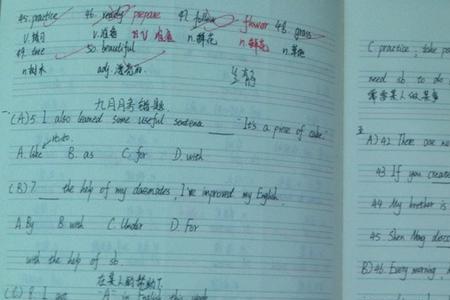 45. practice 46. ready prepare 47. follow flower 48. grass
v. 练习 v. 准备 准备 n. 鲜花 n. 鲜花 n. 草地
49. tree 50. beautiful
n. 树木 adj. 漂亮的
九月月考错题
(A) 5 I also learned some useful sentences ___ "It's a piece of cake."
A. like B. as C. for D. with
(B) 7 ___ the help of my classmates, I've improved my English.
A. By B. with C. Under D. For
with the help of sb
在某人的帮助下
(C) 8. I got "A" in English this
C practice, take
need sb to do
需要某人做某事
A) 42 There are
43 If you
44 My brother is
45 Shen Ming
B) 46 Every morning,